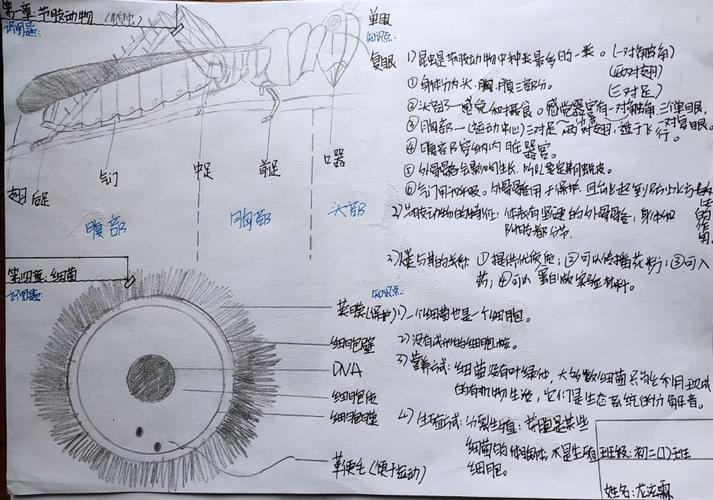 第一章：节肢动物 (昆虫)
识图题：
单眼
知识点：
复眼
1) 昆虫是节肢动物中种类最多的一类。(一对触角)
(两对翅)
(三对足)
① 身体分为头、胸、腹三部分。
② 头部—感觉和摄食。感觉器官有一对触角，三个单眼，
一对复眼。
③ 胸部—(运动中心)三对足 两对翅，适于飞行。
④ 腹部容纳内脏器官。
⑤ 外骨骼会影响生长，所以要定期蜕皮。
⑥ 气门用于呼吸。外骨骼用于保护
2) 节肢动物的特征：体表有坚硬的外骨骼，身体和
附肢都分节。
3) 人类与其的关系 ① 提供优质蛋白；② 可以传播花粉；③ 可入
药；④ 可以做实验材料。
翅
后足
气门
中足
前足
口器
腹部
胸部
头部
第四章：细菌
识图题：
知识点：
荚膜(保护)
细胞壁
DNA
细胞质
细胞膜
鞭毛(便于运动)
1) 一个细菌也是一个细胞。
2) 没有成形的细胞核。
3) 营养方式：细菌没有叶绿体，大多数细菌只能利用现成
的有机物生活，它们是生态系统的分解者。
4) 生殖方式：分裂生殖：芽孢是某些
细菌的休眠体，不是生殖
细胞。
班级：初二(1)班
姓名：